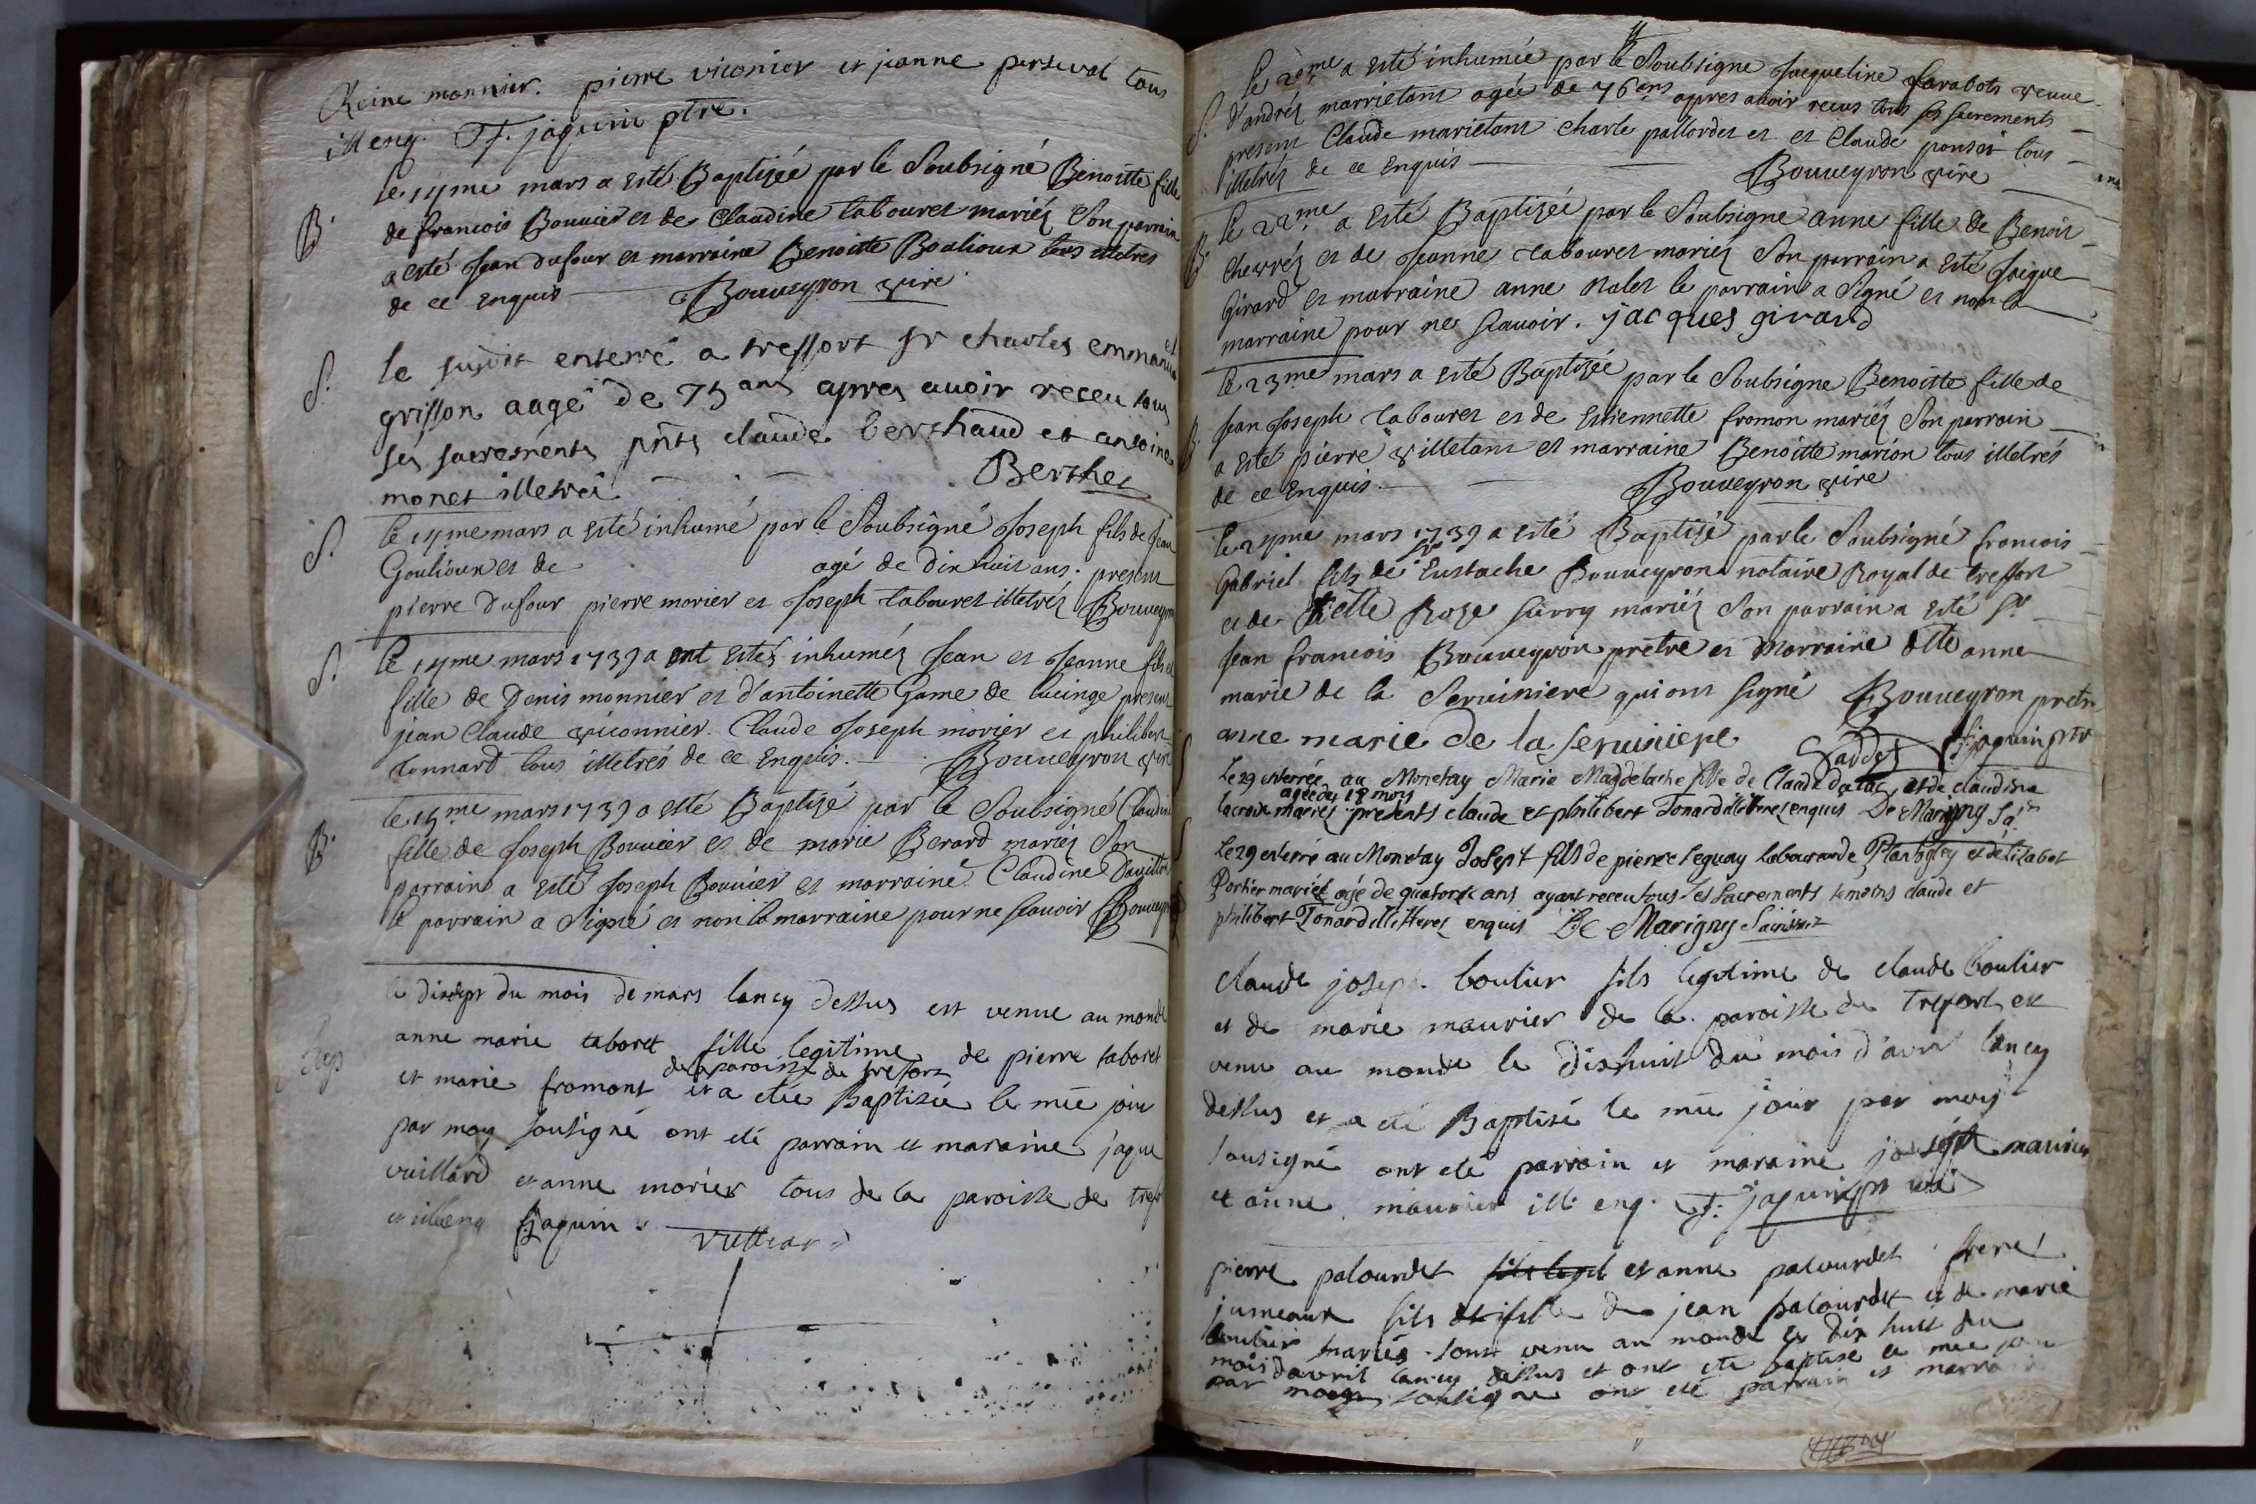 Reine monnier. pierre viconier et jeanne perseval tous
ill enq. F. jaquin ptre.
B. le 14me mars a esté Baptizée par le Soubsigné Benoitte fille
de francois Bouvier et de Claudine tabouret mariéz Son parrain
a esté Jean dufour et marraine Benoitte Boulioux tous illetres
de ce Enquis Bouveyron vire
S. le susdit enterré a treffort sr charles emmanuel
grisson aagé de 75 ans apres avoir receu tous
sés sacremènts pñts claude berthaud et antoine
monet illetréi Berthet
S. le 14me mars a esté inhumé par le Soubsigné Joseph fils de Jean
Goulioux et de agé de dix huit ans. present
pierre dufour pierre morier et Joseph tabouret illetréz Bouveyron
S. le 14me mars 1739 a ont estéz inhuméz Jean et Jeanne fils et
fille de Denis monnier et d'antoinette Game de lucinge present
jean Claude viconnier. Claude Joseph morier et philibert
tonnard tous illetrés de ce Enquis. Bouveyron vire
B. le 15me mars 1739 a esté Baptizé par le Soubsigné Claudine
fille de Joseph Bouvier et de marie Berard mariéz Son
parrain a esté Joseph Bouvier et marraine Claudine
le parrain a Signé et non la marraine pour ne scavoir Bouveyron
le dixsept du mois de mars lancy dessus est venue au monde
anne marie taboret fille legitime de pierre taboret
et marie fromont de la paroisse de trefort et a eté Baptisée le mẽe jour
par moy sousigné ont eté parrain et maraine jaque
vuillard et anne morier tous de la paroisse de trefor
et ill enq F. jaquin Vulliard
le 20me a esté inhumée par le Soubsigne Jacqueline farabots veuve
S. d'andréz marrietant agée de 76 ans apres avoir recus tous ses sacrements
present Claude marietant charle pallordet et et Claude ponsot tous
illetréz de ce Enquis Bouveyron vire
le 22me a esté Baptizée par le Soubsigne anne fille de Benoit
B. chevréz et de Jeanne tabouret mariéz Son parrain a esté Jaique
Girard et marraine anne Nalet le parrain a Signé et non la
marraine pour ne scavoir. jacques girard
le 23me mars a esté Baptizée par le Soubsigne Benoitte fille de
B. Jean Joseph tabouret et de Estiennette fromon mariéz Son parrain
a esté pierre villetant et marraine Benoitte marion tous illetrés
de ce Enquis. Bouveyron vire
le 24me mars 1739 a esté Baptizé par le Soubsigné francois
Gabriel fils de sr Eustache Bouveyron notaire Royal de treffort
et de delle Roze surry mariéz Son parrain a esté Sr
Jean francois Bouveyron pretre et marraine dlle anne
marie de la Serviniere qui ont signé Bouveyron pretre
anne marie de la serviniere Saddet F. jaquin ptr
Le 29 enterrée au Monetay Marie Magdelaine fille de Claude et de claudine
agée de 18 mois
lacroix mariéz presents claude et philibert Tonard illitterez enquis De Marigny Sa
Le 29 enterré au Monetay Joseph fils de pierre Leguay laboura de et d'elizabet
Portier mariéz agé de quatorze ans ayant receu tous les Sacrements temoins claude et
philibert Tonard illitterez enquis De Marigny
claude joseph boulier fils legitime de claude boulier
et de marie maurier de la paroisse de trefort est
venu au monde le dixhuit du mois d'avril lancy
dessus et a eté Baptisé le mẽe jour par moy
sousigné ont eté parrain et maraine joseph maurier
et anne maurier ill enq. F. jaquin pr vi
pierre palourdet fils legit et anne palourdet freres
jumeaux fils et fille de jean palourdet et de marie
boulier mariés sont venu au monde le dix huit du
mois d'avril lancy dessus et ont eté baptise le mẽe jour
par moy sousigne ont eté parrain et marraine